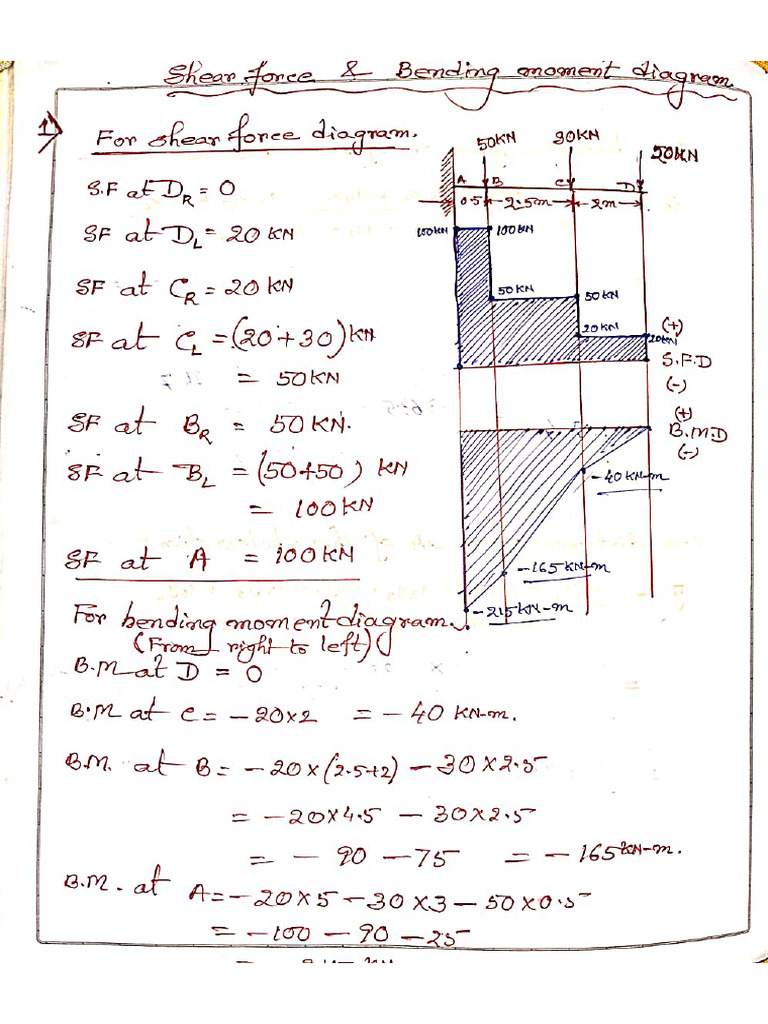 Shear force & Bending moment diagram
1)
For shear force diagram.
S.F at D_R = 0
SF at D_L = 20 KN
SF at C_R = 20 KN
SF at C_L = (20+30) KN
= 50KN
SF at B_R = 50KN.
SF at B_L = (50+50) KN
= 100KN
SF at A = 100KN
50KN 30KN 20KN
A B C D
0.5 2.5m 2m
100KN 100KN
50KN 50KN
20KN 20KN
(+)
S.F.D
(-)
(+)
B.M.D
(-)
-40KN-m
-165KN-m
-215KN-m
For bending moment diagram.
(From right to left)
B.M at D = 0
B.M at C = -20×2 = -40 KN-m.
B.M. at B = -20×(2.5+2) -30×2.5
= -20×4.5 - 30×2.5
= - 90 - 75 = - 165 KN-m.
B.M. at A = -20×5 -30×3 -50×0.5
= -100 - 90 - 25